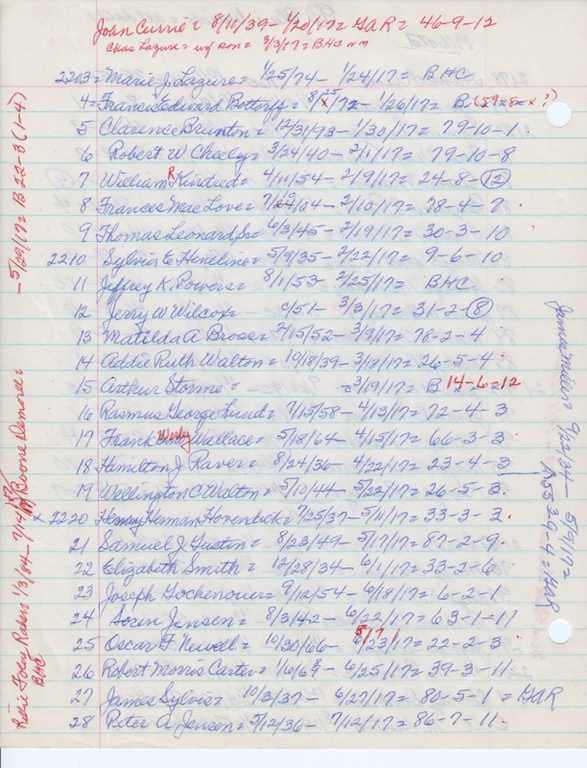 John Currie = 8/11/39 - 1/20/17 = GAR = 46-9-12
Chas Lazure = w/ son = 3/3/17 = BHC
2203 = Marie J. Lazure = 1/25/74 - 1/24/17 = BHC
4 = Francis Edward Bottorff = 8/25/72 - 1/26/17 = B (59=8=x?)
5 Clarence Brunton = 12/31/93 - 1/30/17 = 79-10-1
6 Robert W Cheely = 3/24/40 - 2/1/17 = 79-10-8
7 William R Kindred = 4/11/54 - 2/9/17 = 24-8-12
8 Frances Mae Love = 7/ /04 - 2/10/17 = 78-4-7
9 Thomas Leonard Sr = 6/3/45 - 2/19/17 = 30-3-10
2210 Sylvia E. Hineline = 5/9/35 - 2/22/17 = 9-6-10
11 Jeffrey K. Powers = 8/1/53 - 2/25/17 = BHC
12 Jerry W Wilcox - c/51 - 3/3/17 = 31-2-8
13 Matilda A Bross = 2/15/52 - 3/9/17 = 78-2-4
14 Addie Ruth Walton = 10/18/39 - 3/13/17 = 26-5-4
15 Arthur Storms = c3/19/17 = B 14-6=12
16 Rasmus George Lund = 7/15/58 - 4/13/17 = 72-4-3
17 Frank Wallace = 5/18/64 - 4/15/17 = 66-3-3
18 Hamilton J Raver = 8/24/36 - 4/22/17 = 23-4-3
19 Wellington C Walton = 5/10/44 - 5/22/17 = 26-5-3
x 2220 Henry Herman Hovendick = 7/25/37 - 5/11/17 = 33-3-3
21 Samuel J Gustin = 8/23/49 - 5/17/17 = 87-2-9
22 Elizabeth Smith = 12/28/34 - 6/1/17 = 33-2-6
23 Joseph Gochenour = 9/12/54 - 6/18/17 = 6-2-1
24 Soren Jensen = 8/3/42 - 6/22/17 = 63-1-11
25 Oscar F Newell = 10/30/66 - 6/23/17 = 22-2-3
26 Robert Morris Carter = 1/6/68 - 6/25/17 = 39-3-11
27 James Sylvis = 10/3/37 - 6/27/17 = 80-5-1 = GAR
28 Peter A. Jensen = 2/12/36 - 7/12/17 = 86-7-11
Boone Demoree = - 5/29/17 = B 22-3 (1-4)
BHC
9/22/34 - 5/9/17 =
A 352-9-4 = GAR